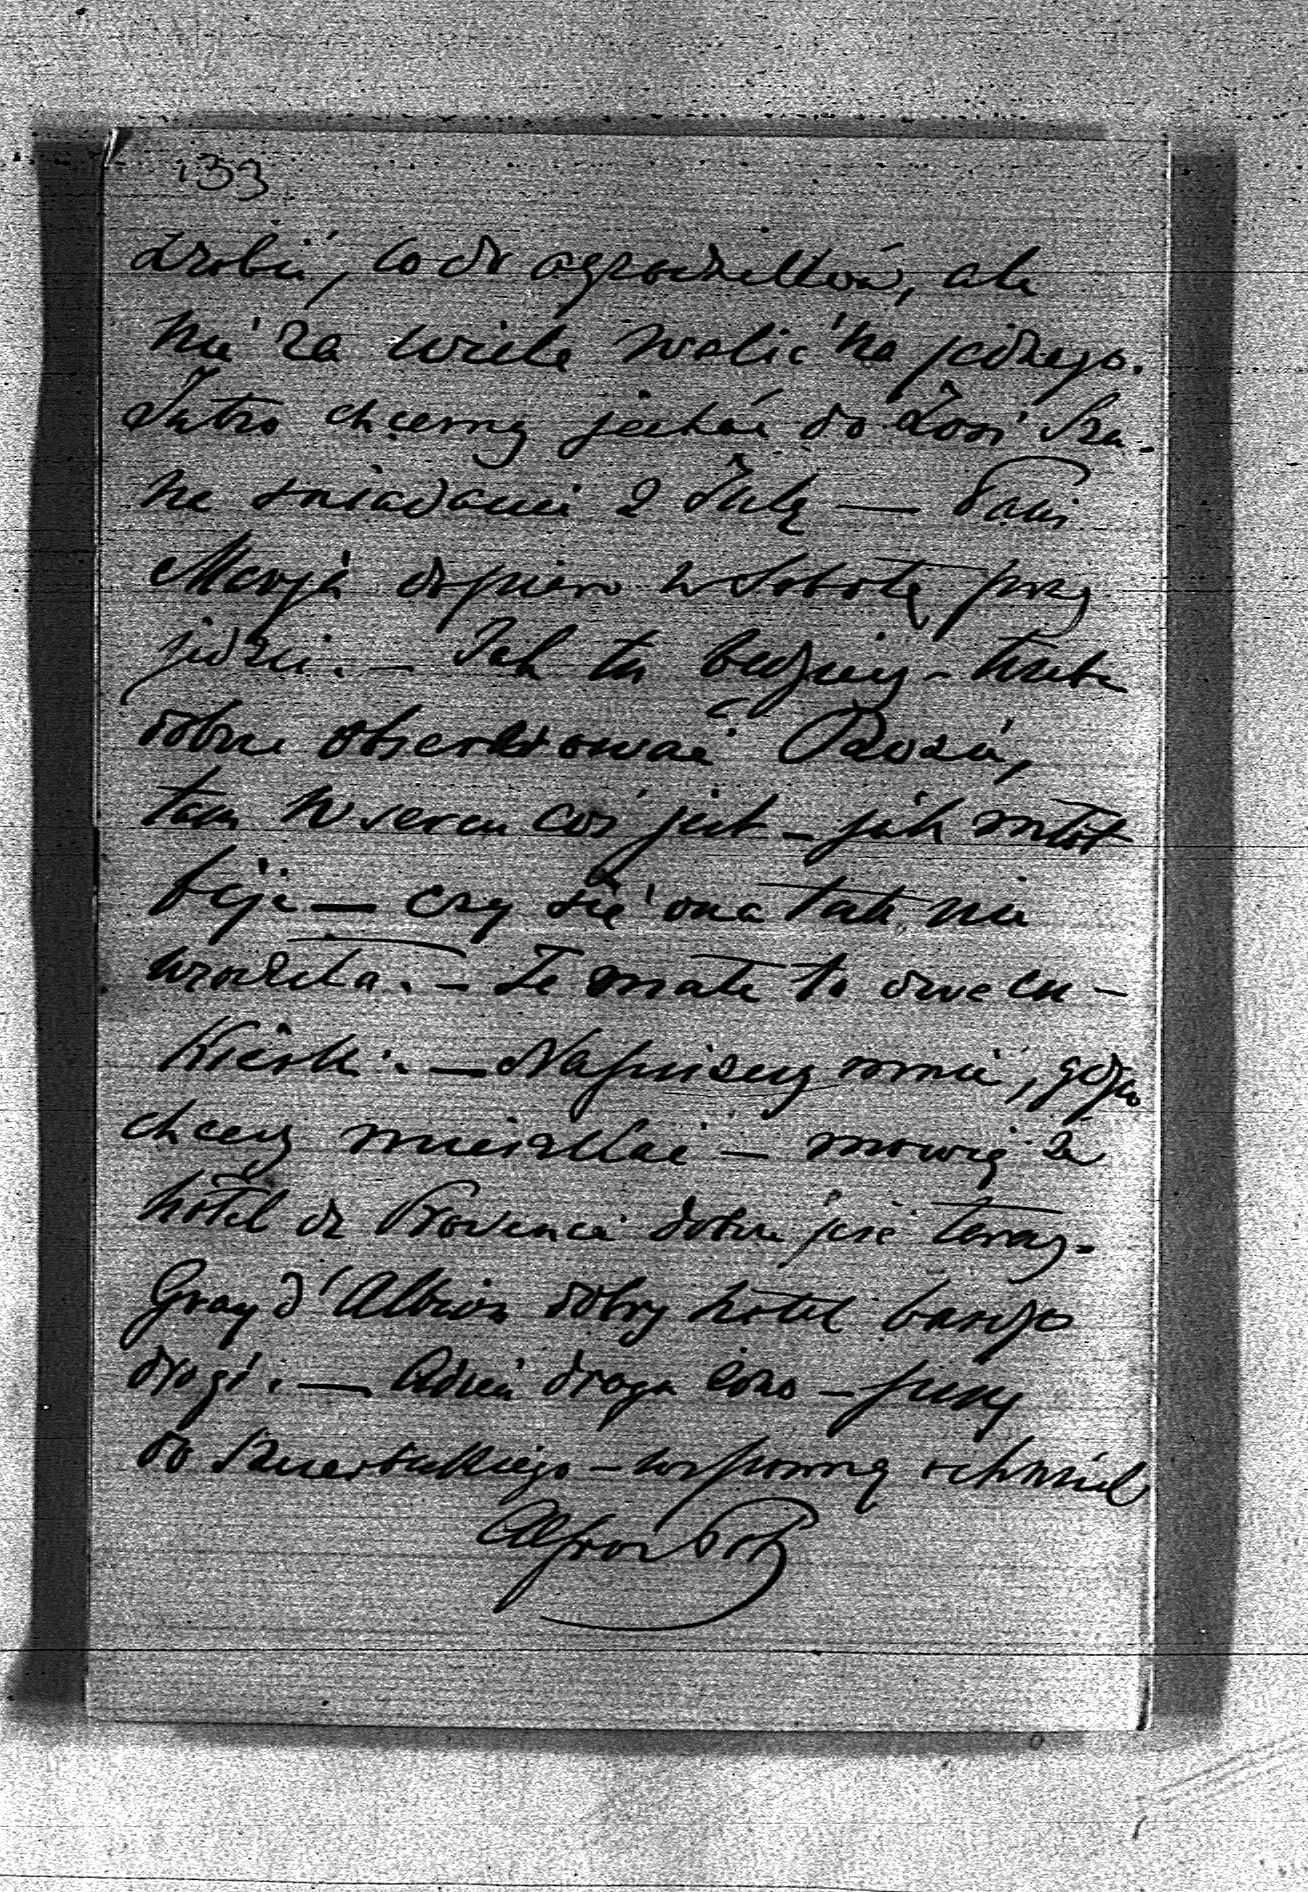 133
zrobić, co do ogrodników, ale
nie za wiele walić na jednego.
Jutro chcemy jechać do Zosi Sza
na śniadanie z Julą — Pani
Marya dopiero w Sobotę przy
jedzie. — Jak tu będziesz — trzeba
dobrze obserwować Rózię,
tam w sercu coś jest — jak młot
bije — czy się ona tak nie
urodziła. — Te małe to dwa cu-
kierki. — Napisz mnie, gdzie
chcesz mieszkać — mówią że
hôtel de Provence dobre jest teraz.
Gray d'Albion dobry hotel bardzo
drogi. — Adieu droga — piszę
do — wspomnę
Alfred Pot